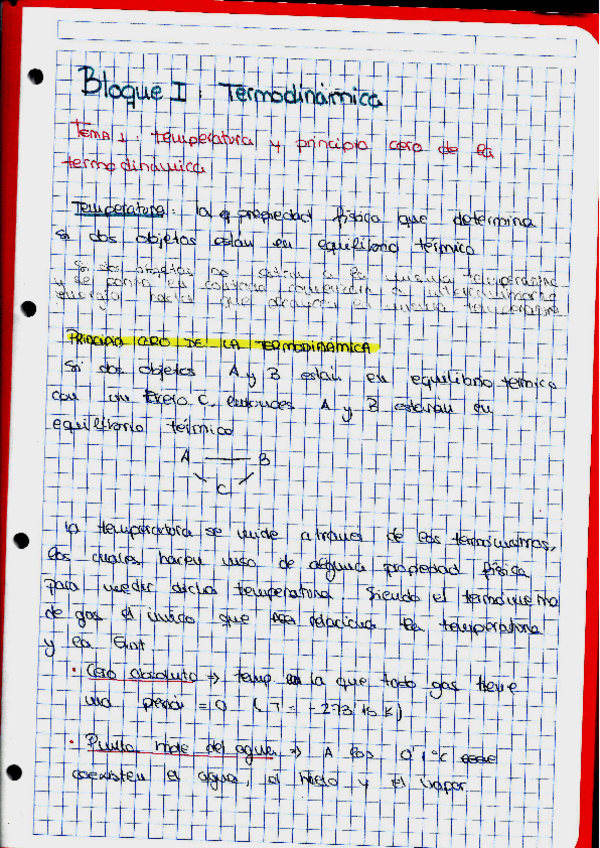 Bloque I: Termodinámica
Tema 1: temperatura y principio cero de la
termodinámica
Temperatura: la propiedad física que determina
si dos objetos están en equilibrio térmico
Si dos objetos no están a la misma temperatura
y se ponen en contacto
energía hasta que alcancen la misma temperatura
PRINCIPIO CERO DE LA TERMODINÁMICA
Si dos objetos A y B están en equilibrio termico
con un tercero C, entonces A y B estarán en
equilibrio térmico
A B
C
la temperatura se mide a traves de los termómetros,
los cuales hacen uso de alguna propiedad física
para medir dicha temperatura. Siendo el termómetro
de gas el único que relaciona la temperatura
y la Eint.
• Cero absoluto => temp en la que todo gas tiene
una presión = 0 (T = -273'15 K)
• Punto triple del agua => A los 0'1°C
coexisten el agua, el hielo y el vapor.